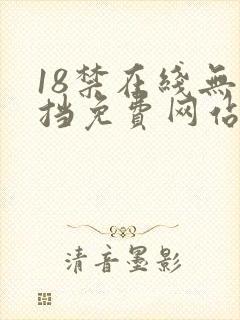 18禁在线無
挡免費网佔
清音墨影